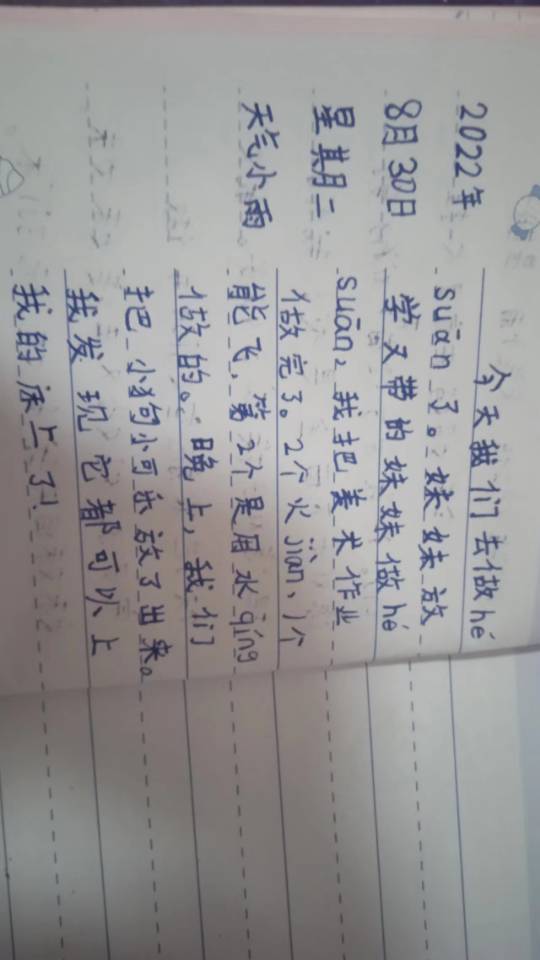 2022年
8月30日
星期二
天气小雨
今天我们去做hé
suān了。妹妹放
学又带的妹妹做hé
suān,我把美术作业
做完了。2个火jiàn、1个
能飞,第2个是用水qíng
做的。晚上,我们
把小狗小可乐放了出来。
我发现它都可以上
我的床上了!